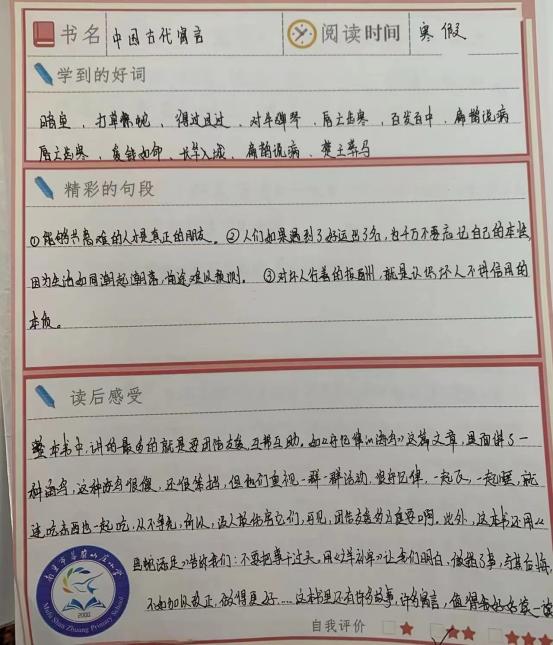 书名 中国古代寓言 阅读时间 寒假
学到的好词
打草惊蛇、得过且过、对牛弹琴、唇亡齿寒、百发百中、扁鹊说病
唇亡齿寒、长竿入城、扁鹊说病、楚王葬马
精彩的句段
①能够共患难的人才是真正的朋友。②人们如果遇到了好运出了名,也千万不要忘记自己的本性,
因为生活如同潮起潮落,前途难以预测。③对坏人行善的报酬,就是认识坏人不讲信用的
本质。
读后感受
整本书中,讲的最多的就是要团结友爱,互帮互助。这篇文章,里面讲了一
种海鸟,这种海鸟很傻,还很笨拙,但他们重视一群一群活动,一起飞,一起睡,就
连吃东西也一起吃,从不争先,所以,没人敢伤害它们,可见,团结友爱的力量重要啊。此外,这本书还用《
告诉我们:不要把事干过头。用《让我们明白,做错了事,与其后悔,
不如加以改正,做得更好……这本书里还有许多故事,许多寓言,值得我好好读一读
自我评价
Mufu Shan Zhuang Primary School
2000